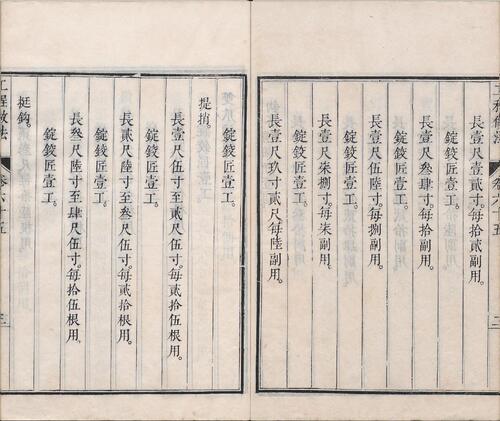 工程做法 卷六十五 二
長壹尺壹貳寸。每拾貳副用。
錠鉸匠壹工。
長壹尺叁肆寸。每拾副用。
錠鉸匠壹工。
長壹尺伍陸寸。每捌副用。
錠鉸匠壹工。
長壹尺柒捌寸。每柒副用。
錠鉸匠壹工。
長壹尺玖寸貳尺。每陸副用。
錠鉸匠壹工。
提捎
長壹尺伍寸至貳尺伍寸。每貳拾伍根用。
錠鉸匠壹工。
長貳尺陸寸至叁尺伍寸。每貳拾根用。
錠鉸匠壹工。
長叁尺陸寸至肆尺伍寸。每拾伍根用。
錠鉸匠壹工。
挺鈎。
工程做法 卷六十五 三